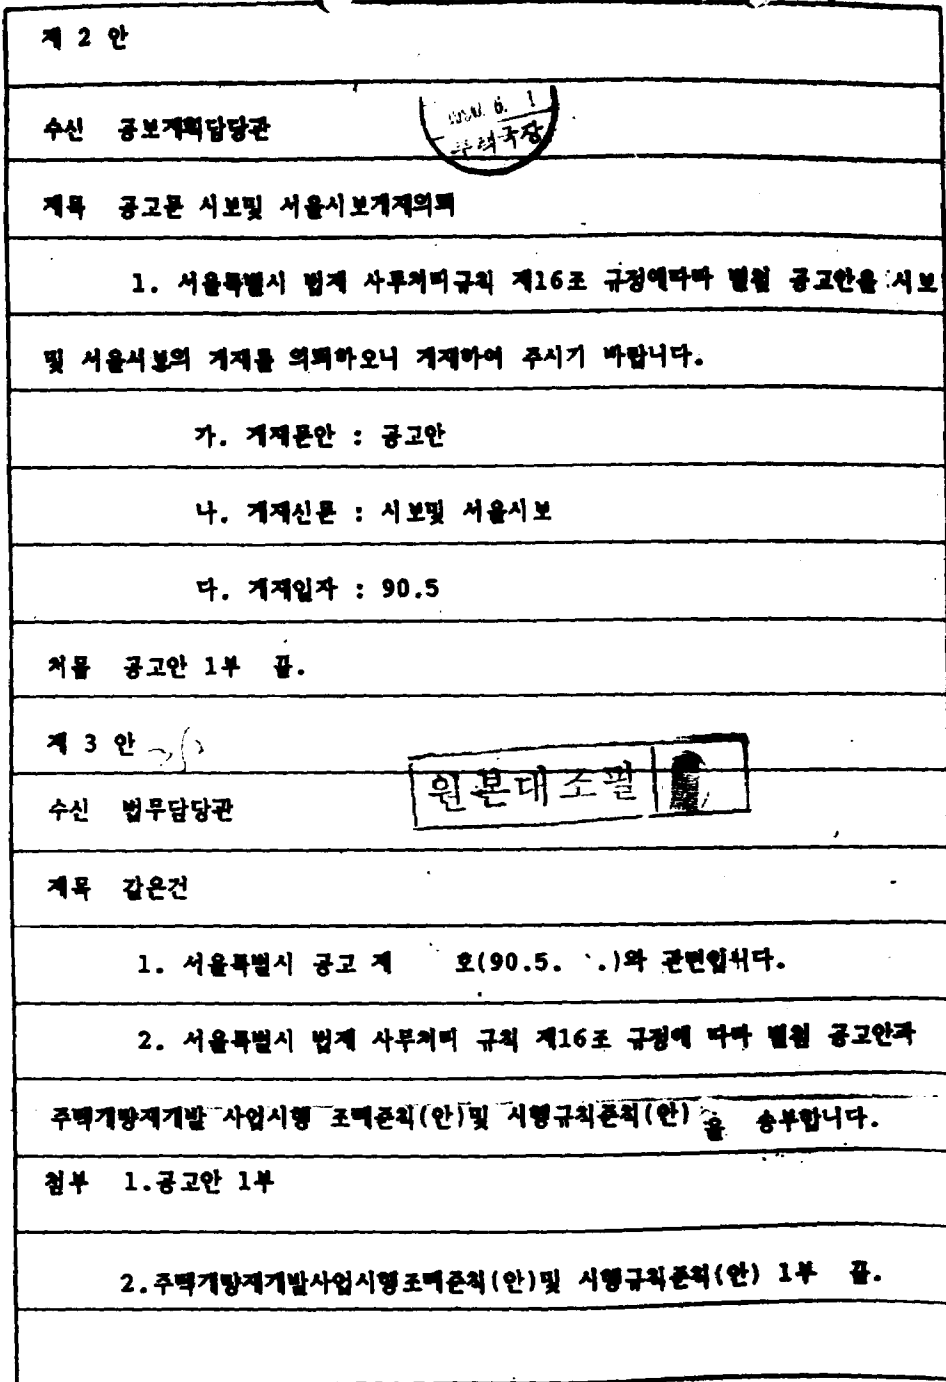 제 2 안
수신 공보계획담당관
1990. 6. 1
주택국장
제목 공고문 시보및 서울시보게재의뢰
1. 서울특별시 법제 사무처리규칙 제16조 규정에따라 별첨 공고안을 시보
및 서울시보의 게재를 의뢰하오니 게재하여 주시기 바랍니다.
가. 게재문안 : 공고안
나. 게재신문 : 시보및 서울시보
다. 게재일자 : 90.5
처물 공고안 1부 끝.
제 3 안
원본대조필
수신 법무담당관
제목 같은건
1. 서울특별시 공고 제 호(90.5. .)와 관련입니다.
2. 서울특별시 법제 사무처리 규칙 제16조 규정에 따라 별첨 공고안과
주택개량재개발 사업시행 조례준칙(안)및 시행규칙준칙(안)을 송부합니다.
첨부 1.공고안 1부
2.주택개량재개발사업시행조례준칙(안)및 시행규칙준칙(안) 1부 끝.